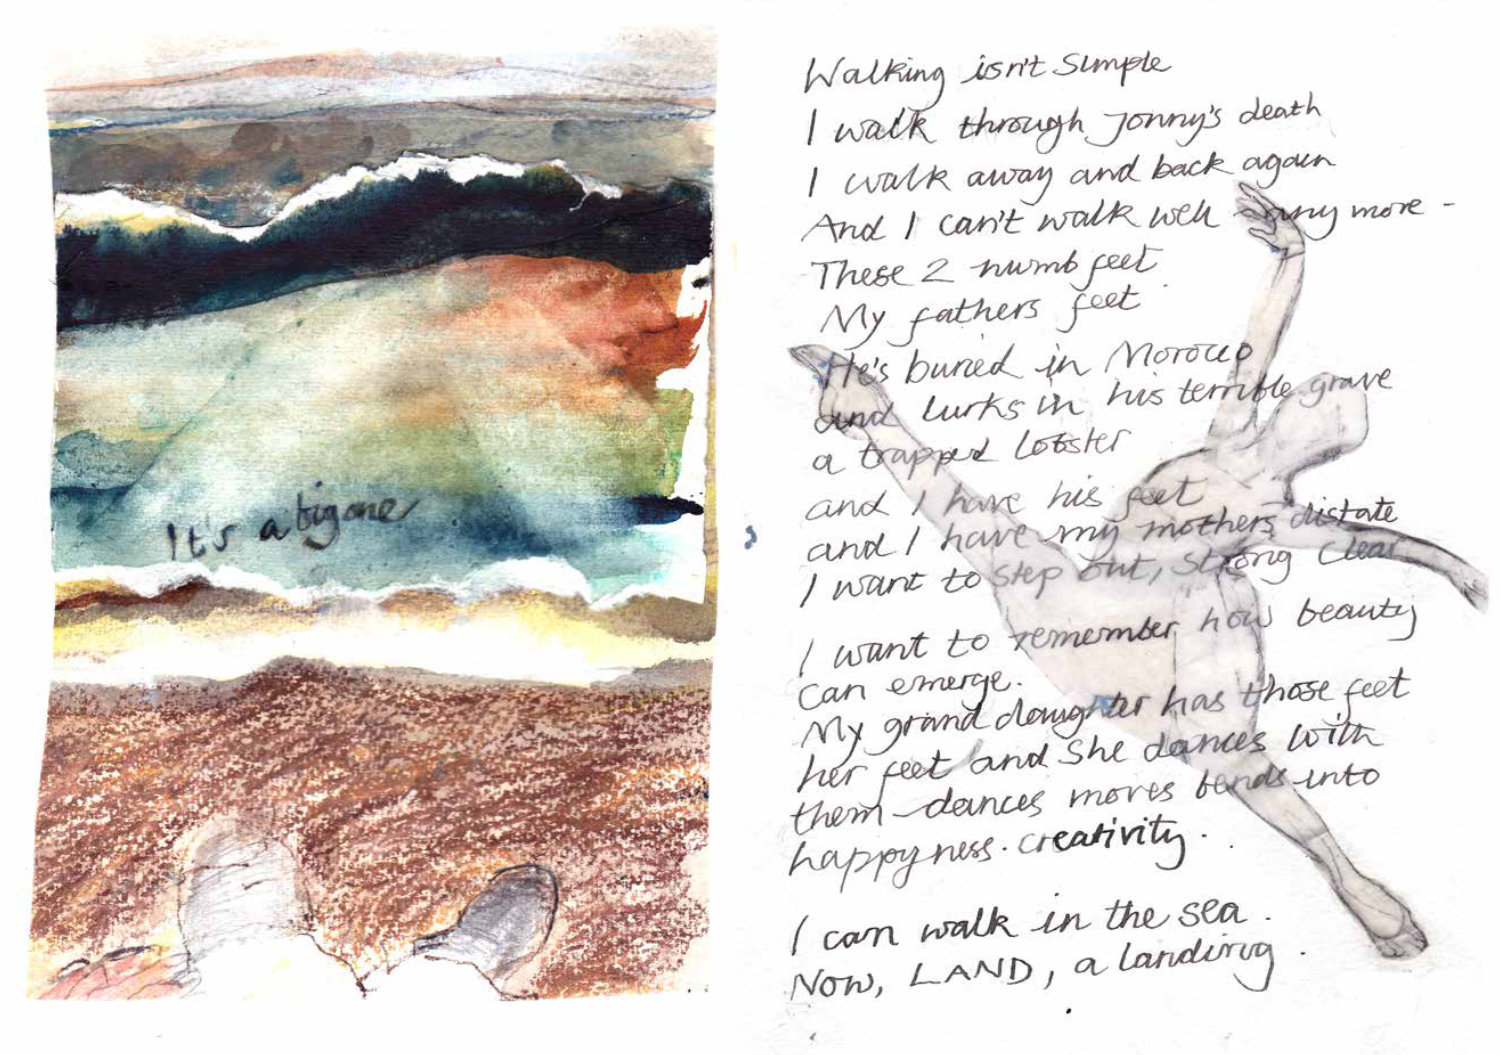 It's a big one
Walking isn't simple
I walk through Jonny's death
I walk away and back again
And I can't walk well any more -
These 2 numb feet
My fathers feet
He's buried in Morocco
and lurks in his terrible grave
a trapped lobster
and I have his feet
and I have my mothers distate
I want to step out, strong clear
I want to remember how beauty
can emerge.
My grand daughter has those feet
her feet and she dances with
them - dances moves bends into
happyness. creativity.
I can walk in the sea.
Now, LAND, a landing.